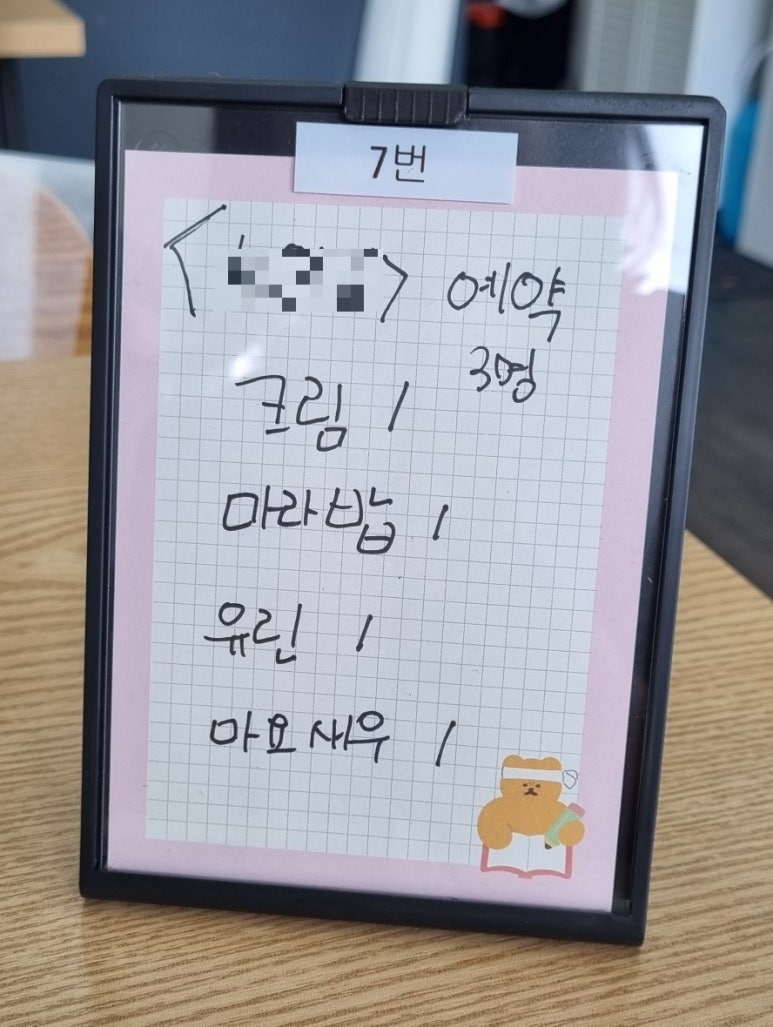 7번
< > 예약
3명
크림 1
마라밥 1
유린 1
마요새우 1